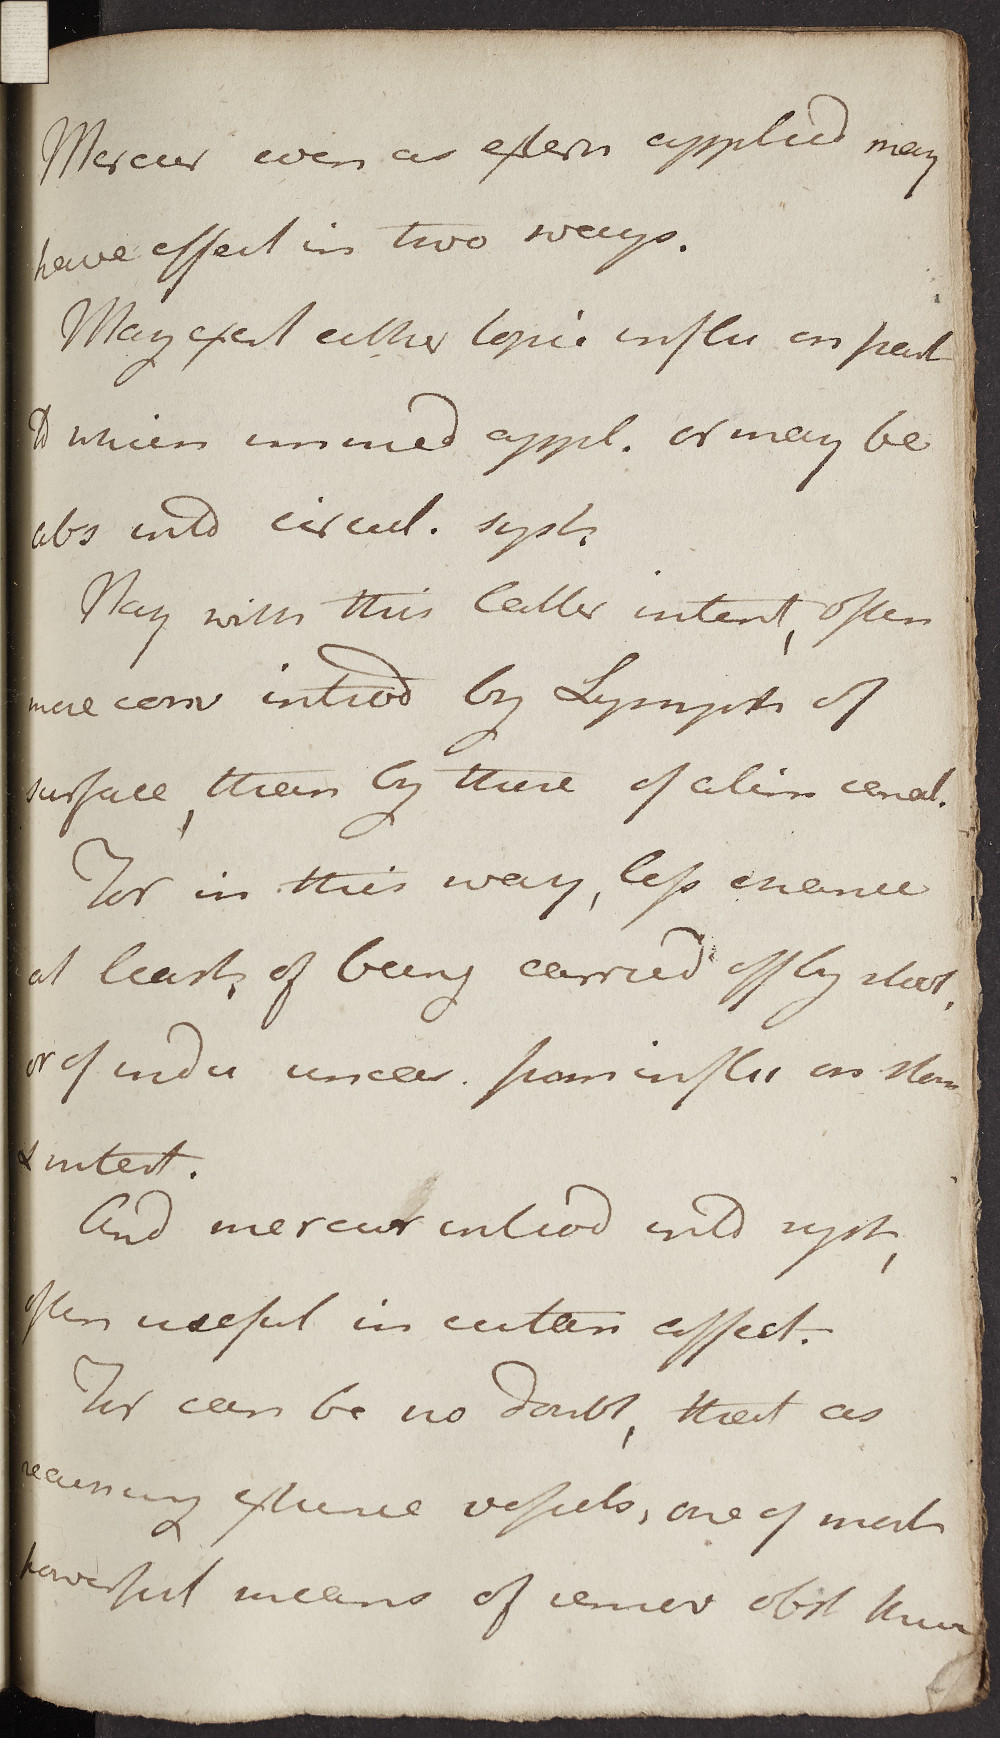 Mercur even as extern applied may
have effect in two ways.
May exert either topic influ on part
to which immed appl. or may be
abs into circul. syst.
Nay with this latter intent, often
more conv introd by Lymph of
surface, than by those of alim canal.
For in this way, less chance
at least, of being carried off by stool,
or of indu uneas. from influ on stom
& intest.
And mercur introd into syst,
often useful in cutan affect.
For can be no doubt, that as
reaching extreme vessels, one of most
powerful means of remov obst there